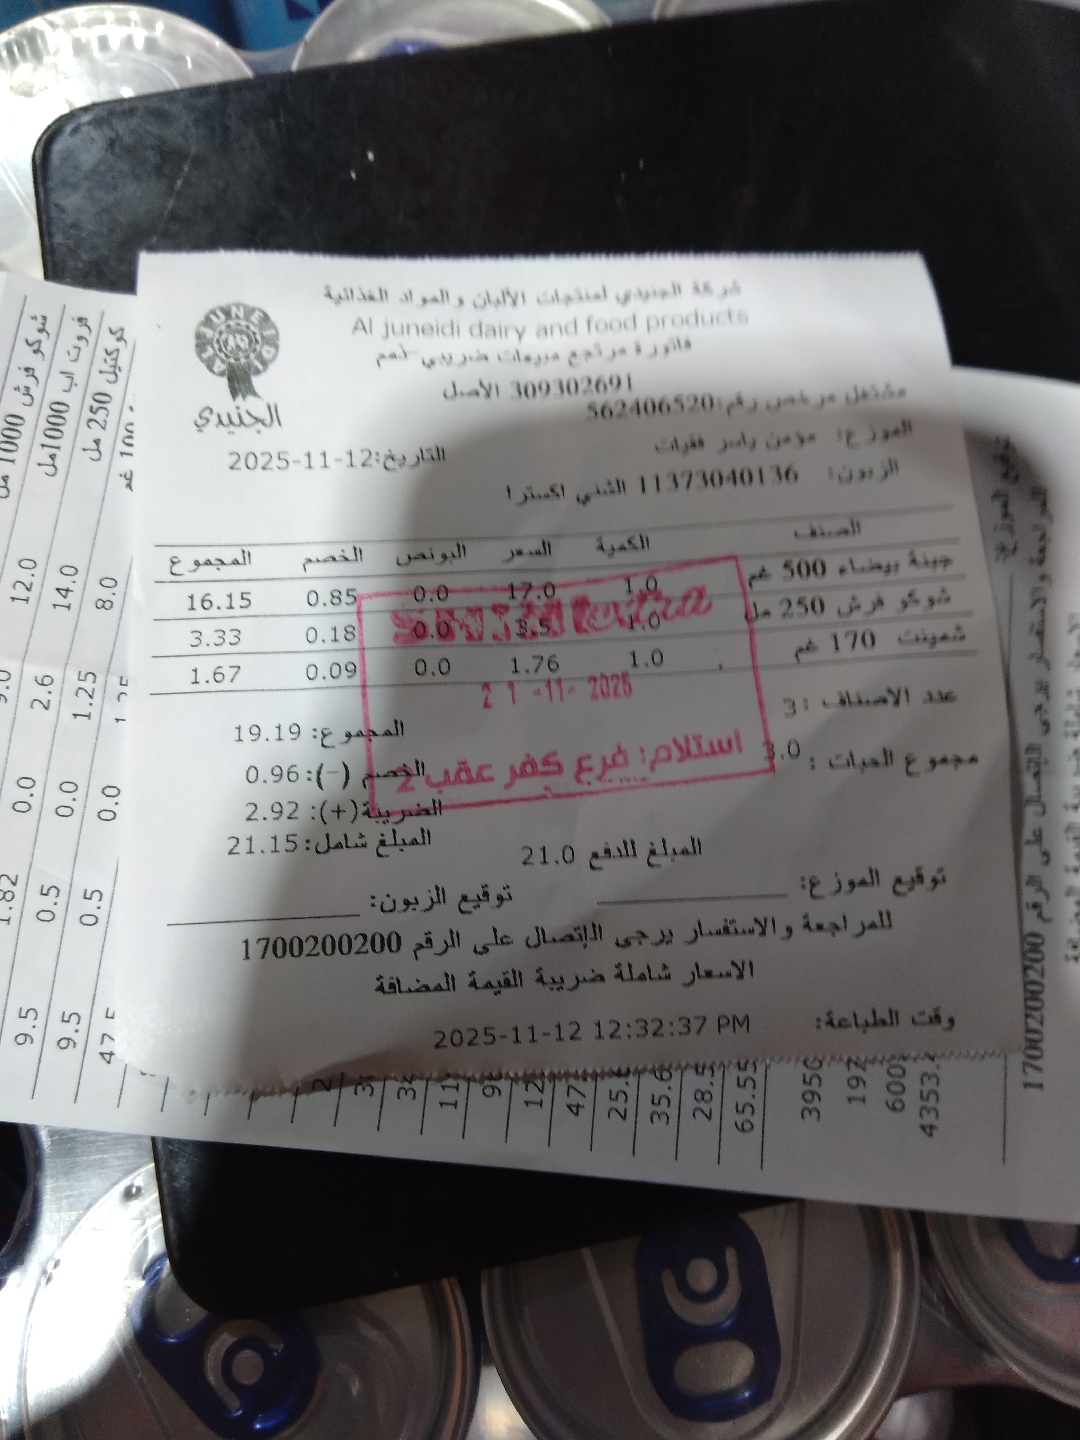 شركة الجنيدي لمنتجات الألبان والمواد الغذائية
Al juneidi dairy and food products
AL JUNEIDI
الجنيدي
فاتورة مرتجع مبيعات ضريبي
309302691 الأصل
مشتغل مرخص رقم:562406520
الموزع: مؤمن ياسر فقيات
التاريخ:2025-11-12
الزبون: 11373040136 الشني اكسترا
الصنف الكمية السعر البونص الخصم المجموع
جبنة بيضاء 500 غم 1.0 17.0 0.0 0.85 16.15
شوكو فرش 250 مل 1.0 3.5 0.0 0.18 3.33
شمينت 170 غم 1.0 1.76 0.0 0.09 1.67
21-11-2025
استلام: فرع كفر عقب 2
عدد الاصناف :3
المجموع: 19.19
مجموع الحبات : 3.0
الخصم (-): 0.96
الضريبة(+): 2.92
المبلغ شامل: 21.15
المبلغ للدفع 21.0
توقيع الموزع:
توقيع الزبون:
للمراجعة والاستفسار يرجى الإتصال على الرقم 1700200200
الاسعار شاملة ضريبة القيمة المضافة
وقت الطباعة: 2025-11-12 12:32:37 PM
شوكو فرش 1000 مل 12.0 0.0 9.5
فروت اب 1000مل 14.0 2.6 0.0 0.5 9.5
كوكتيل 250 مل 8.0 1.25 0.0 0.5
35.6
65.55
توقيع الموزع:
للمراجعة والاستفسار يرجى الإتصال على الرقم 1700200200